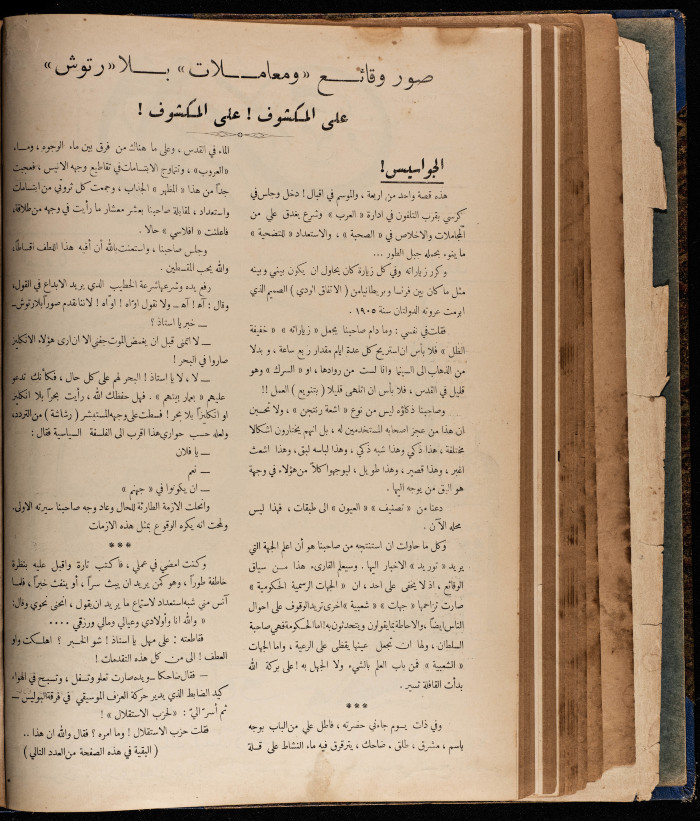 صور وقائع «ومعاملات» بلا «رتوش»
على المكشوف ! على المكشوف !
الجواسيس !
هذه قصة واحد من اربعة ، والموسم في اقبال ! دخل وجلس في
كرسي بقرب التلفون في ادارة « العرب » وشرع يغدق علي من
المجاملات والاخلاص في « الصحبة » ، والاستعداد « للتضحية »
ما ينوء بحمله جبل الطور ...
وكرر زياراته وفي كل زيارة كان يحاول ان يكون بيني وبينه
مثل ما كان بين فرنسا وبريطانيا من ( الاتفاق الودي ) الصميم الذي
ابرمت عروته الدولتان سنة ١٩٠٥ .
فقلت في نفسي : وما دام صاحبنا يجعل « زياراته » « خفيفة
الظل » فلا بأس ان استريح كل عدة ايام مقدار ربع ساعة ، و بدلا
من الذهاب الى السينما وانا لست من روادها ، او « السرك » وهو
قليل في القدس ، فلا بأس ان اتلهى قليلا ( بتنويع ) العمل !!
وصاحبنا ذكاؤه ليس من نوع « اشعة رنتجن » ، ولا تحسبن
ان هذا من عجز اصحابه المستخدمين له ، بل انهم يختارون اشكالا
مختلفة ، هذا ذكي وهذا شبه ذكي ، وهذا لباسه لبق ، وهذا اشعث
اغبر ، وهذا قصير ، وهذا طويل ، ليوجهوا كلاً من هؤلاء في وجهة
هو اليق من يوجه اليها .
دعنا من « تصنيف » « العيون » الى طبقات ، فهذا ليس
محله الآن .
وكل ما حاولت ان استنتجه من صاحبنا هو أن اعلم الجهة التي
يريد « توريد » الاخبار اليها . وسيعلم القارىء هذا من سياق
الوقائع ، اذ لا يخفى على احد ، ان « الجهات الرسمية الحكومية »
صارت تزاحمها « جهات » « شعبية » اخرى تريد الوقوف على احوال
الناس ايضاً ، والاحاطة بما يقولون ويتحدثون به ! اما الحكومة فهي صاحبة
السلطان ، ولها ان تجعل عينها يقظى على الرعية ، واما الجهات
« الشعبية » فمن باب العلم بالشيء ولا الجهل به ! على بركة الله
بدأت القافلة تسير .
***
وفي ذات يوم جاءني حضرته ، فاطل علي من الباب بوجه
باسم ، مشرق ، طلق ، ضاحك ، يترقرق فيه ماء النشاط على قلة
الماء في القدس ، وعلى ما هناك من فرق بين ماء الوجوه ، وماء
« العروب » ، وتتاوج الابتسامات في تقاطيع وجهه الانيس ، فعجبت
جداً من هذا « المظهر » الجذاب ، وجمعت كل ثروتي من ابتسامات
واستعداد ، لمقابلة صاحبنا بعشر معشار ما رأيت في وجهه من طلاقة ،
فاعلنت « افلاسي » حالا .
وجلس صاحبنا ، واستعنت بالله أن أفيه هذا اللطف اقساطاً ،
والله يحب المقسطين .
رفع يده وشرعها شرعة الخطيب الذي يريد الابداع في القول ،
وقال : آه ! آه – ولا نقول اوّاه ! اوّاه ! لاننا نقدم صوراً بلا رتوش –
— خير يا استاذ ؟
— لا اتمنى قبل ان يغمض الموت جفني الا ان ارى هؤلاء الانكليز
صاروا في البحر !
— لا ، لا يا استاذ ! البحر لهم على كل حال ، فكأنك تدعو
عليهم « بعمار بيتهم » . فهل حفظك الله ، رأيت بحراً بلا انكليز
او انكليزاً بلا بحر ! فسطت على وجهه المستبشر ( رشاشة ) من التردد ،
ولعله حسب حواري هذا اقرب الى الفلسفة السياسية فقال :
— يا فلان
— نعم
— ان يكونوا في « جهنم »
وانحلت الازمة الطارئة للحال وعاد وجه صاحبنا سيرته الاولى .
ولمحت انه يكره الوقوع بمثل هذه الازمات
***
وكنت امضي في عملي ، فاكتب تارة واقبل عليه بنظرة
خاطفة طوراً ، وهو كمن يريد ان يبث سراً ، أو ينفث خبراً ، فلما
آنس مني شبه استعداد لاستماع ما يريد ان يقول ، انحنى نحوي وقال :
« والله انا وأولادي وعيالي ومالي ورزقي ....
فقاطعته : على مهل يا استاذ ! شو الخبر ؟ اهلكت واو
العطف ! الى من كل هذه التقدمات !
— فقال ضاحكا — ويده صارت تعلو وتسفل ، وتسبح في الهواء
كيد الضابط الذي يدير حركة العزف الموسيقي في فرقة البوليس —
ثم أسرّ اليّ : « لحزب الاستقلال » !
فقلت حزب الاستقلال ! وما امره ؟ فقال والله ان هذا ..
( البقية في هذه الصفحة من العدد التالي )